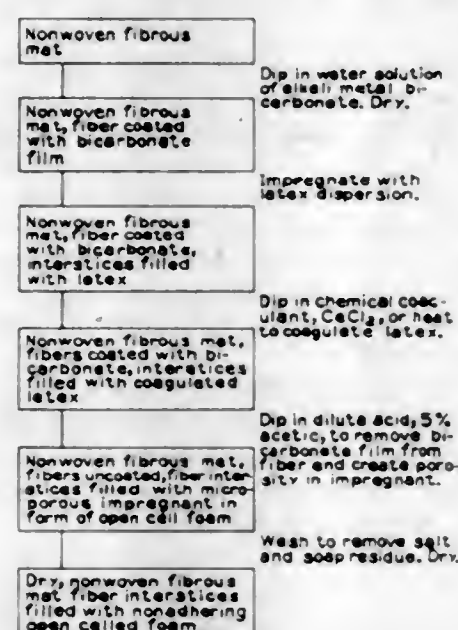 Nonwoven fibrous
mat
Dip in water solution
of alkali metal bi-
carbonate. Dry.
Nonwoven fibrous
mat, fiber coated
with bicarbonate
film
Impregnate with
latex dispersion.
Nonwoven fibrous
mat, fiber coated
with bicarbonate,
interstices filled
with latex
Dip in chemical coag-
ulant, CaCl₂, or heat
to coagulate latex.
Nonwoven fibrous mat,
fibers coated with bi-
carbonate, interstices
filled with coagulated
latex
Dip in dilute acid, 5%
acetic, to remove bi-
carbonate film from
fiber and create poro-
sity in impregnant.
Nonwoven fibrous mat,
fibers uncoated, fiber inter-
stices filled with micro-
porous impregnant in
form of open cell foam
Wash to remove salt
and soap residue. Dry.
Dry, nonwoven fibrous
mat fiber interstices
filled with nonadhering
open celled foam